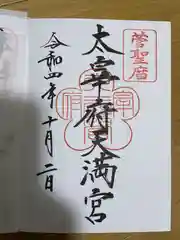 菅聖廟
太宰府天満宮
令和四年十月二日